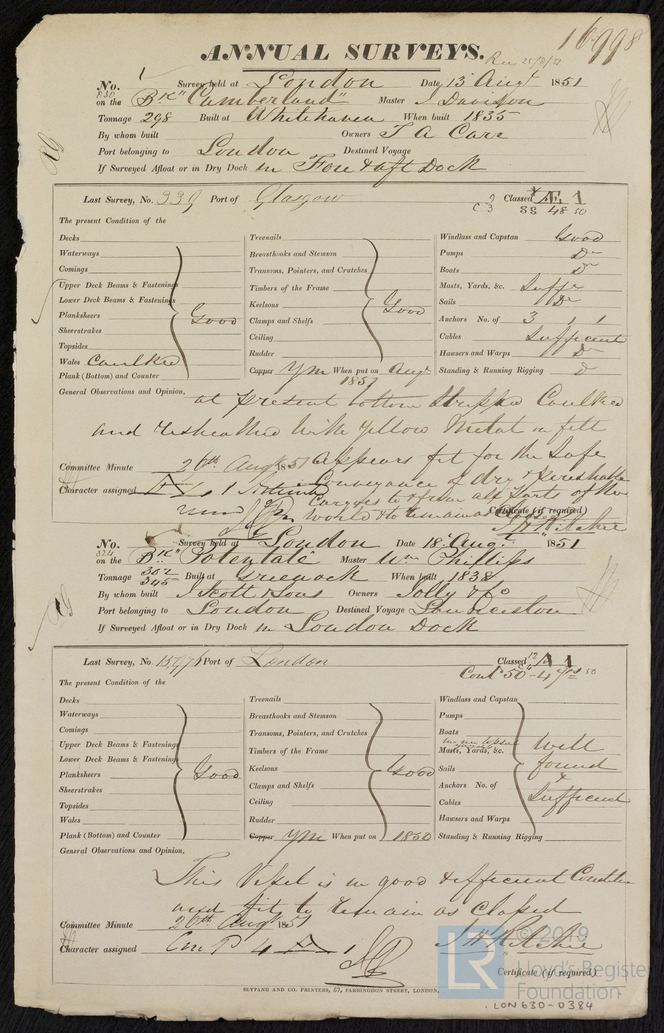 16998
ANNUAL SURVEYS.
Rec 25/8/51
No. 830 Survey held at London Date 13 Augt 1851
on the Bk "Cumberland" Master J Davison
Tonnage 298 Built at Whitehaven When built 1835
By whom built Owners T A Carr
Port belonging to London Destined Voyage
If Surveyed Afloat or in Dry Dock in Fore & aft Dock
Last Survey, No. 339 Port of Glasgow Classed Æ 1
C 3 SS 48 50
The present Condition of the
Decks
Waterways
Comings
Upper Deck Beams & Fastenings
Lower Deck Beams & Fastenings
Planksheers
Sheerstrakes
Good
Topsides
Wales Caulked
Plank (Bottom) and Counter
Treenails
Breasthooks and Stemson
Transoms, Pointers, and Crutches
Timbers of the Frame
Keelsons
Good
Clamps and Shelfs
Ceiling
Rudder
Copper YM When put on Augt 1851
Windlass and Capstan Good
Pumps Do
Boats Do
Masts, Yards, &c. Sufft
Sails Do
Anchors No. of 3 1 1
Cables Sufficient
Hawsers and Warps Do
Standing & Running Rigging Do
General Observations and Opinion, at present bottom Stripped Caulked
and resheathed with Yellow Metal on felt
Appears fit for the Safe
Conveyance of dry & perishable
Cargoes to & from all parts of the
World & to remain as
Committee Minute 26th Augt 1851
Character assigned Æ 1
Certificate (if required)
J H Ritchie
No. 824 Survey held at London Date 18 Augt 1851
on the Bk "Potentate" Master Wm Phillips
Tonnage 302 345 Built at Greenock When built 1838
By whom built J Scott & Sons Owners Tolly & Co
Port belonging to London Destined Voyage Launceston
If Surveyed Afloat or in Dry Dock in London Dock
Last Survey, No. 15976 Port of London Classed 12 A 1
Contd 50 - 4 yrs 50
The present Condition of the
Decks
Waterways
Comings
Upper Deck Beams & Fastenings
Lower Deck Beams & Fastenings
Planksheers
Good
Sheerstrakes
Topsides
Wales
Plank (Bottom) and Counter
Treenails
Breasthooks and Stemson
Transoms, Pointers, and Crutches
Timbers of the Frame
Keelsons
Good
Clamps and Shelfs
Ceiling
Rudder
Copper YM When put on 1850
Windlass and Capstan
Pumps
Boats
Masts, Yards, &c. Well
Sails found
Anchors No. of &
Cables Sufficient
Hawsers and Warps
Standing & Running Rigging
General Observations and Opinion,
This Vessel is in good & efficient Condition
and fit to remain as Classed
Committee Minute 26th Augt 1851
Character assigned ContP 4 A 1
J H Ritchie
Certificate (if required)
SEYFANG AND CO. PRINTERS, 57, FARRINGDON STREET, LONDON.
© 2019
LR
Lloyd's Register
Foundation
LON630-0384